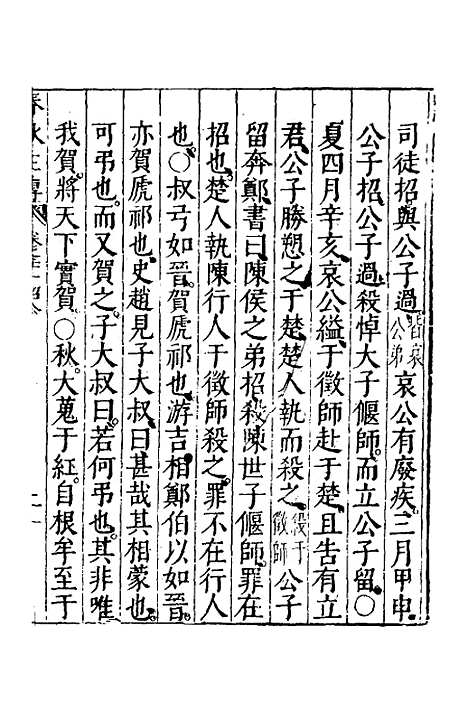 司徒招與公子過皆哀公弟哀公有廢疾。三月甲申。
公子招。公子過。殺悼大子偃師。而立公子留。〇
夏四月辛亥。哀公縊。于徵師赴于楚。且告有立
君。公子勝愬之于楚。楚人執而殺之。殺于徵師公子
留奔鄭。書曰。陳侯之弟招。殺陳世子偃師。罪在
招也。楚人執陳行人于徵師殺之。罪不在行人
也。〇叔弓如晉。賀虒祁也。游吉。相鄭伯以如晉。
亦賀虒祁也。史趙見子大叔。曰甚哉其相蒙也。
可弔也。而又賀之。子大叔曰。若何弔也。其非唯
我賀。將天下實賀。〇秋。大蒐于紅。自根牟至于
春秋左傳